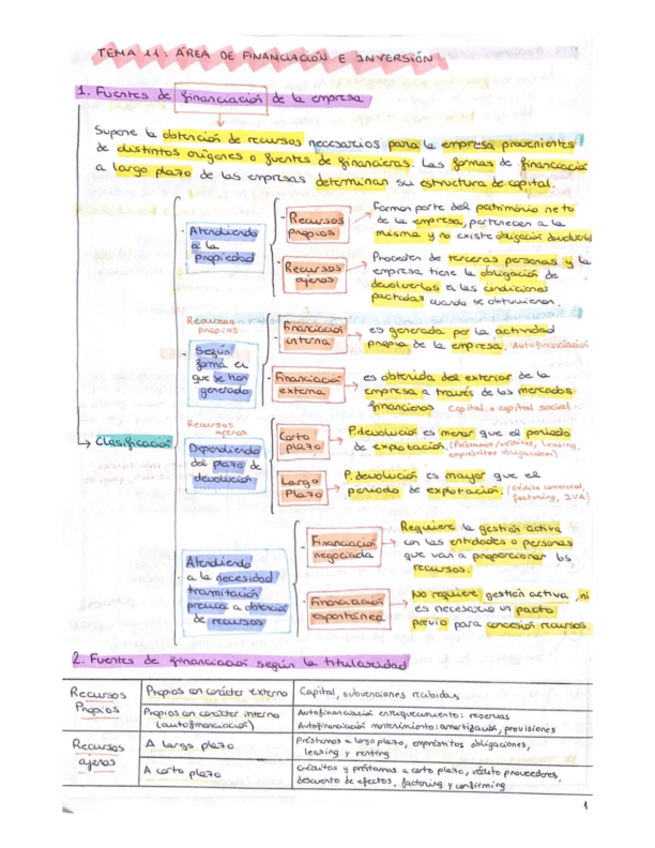 TEMA 11: ÁREA DE FINANCIACIÓN E INVERSIÓN
1. Fuentes de financiación de la empresa
Supone la obtención de recursos necesarios para la empresa provenientes
de distintos orígenes o fuentes de financieras. Las formas de financiación
a largo plazo de las empresas determinan su estructura de capital.
Clasificación
Atendiendo
a la
propiedad
Recursos
propios
Forman parte del patrimonio neto
de la empresa, pertenecen a la
misma y no existe obligación devolverlos
Recursos
ajenos
Proceden de terceras personas y la
empresa tiene la obligación de
devolverlos a las condiciones
pactadas cuando se obtuvieron.
Recursos
propios
Según
forma en
que se han
generado
Financiación
interna
es generada por la actividad
propia de la empresa. Autofinanciación
Financiación
externa
es obtenida del exterior de la
empresa a través de los mercados
financieros Capital e capital social
Recursos
ajenos
Dependiendo
del plazo de
devolución
Corto
plazo
P.devolución es menor que el periodo
de explotación. (Préstamos/créditos, leasing,
empréstitos obligaciones)
Largo
Plazo
P.devolución es mayor que el
periodo de explotación. (Crédito comercial,
factoring, IVA)
Atendiendo
a la necesidad
tramitación
previa a obtención
de recursos
Financiación
negociada
Requiere la gestión activa
con las entidades o personas
que van a proporcionar los
recursos.
Financiación
espontánea
No requiere gestión activa, ni
es necesario un pacto
previo para concesión recursos.
2. Fuentes de financiación según la titularidad
Recursos
Propios
Propios con carácter externo
Capital, subvenciones recibidas
Propios con carácter interno
(autofinanciación)
Autofinanciación enriquecimiento: reservas
Autofinanciación mantenimiento: amortización, provisiones
Recursos
ajenos
A largo plazo
Préstamos a largo plazo, empréstitos obligaciones,
leasing y renting
A corto plazo
Créditos y préstamos a corto plazo, crédito proveedores,
descuento de efectos, factoring y confirming
1